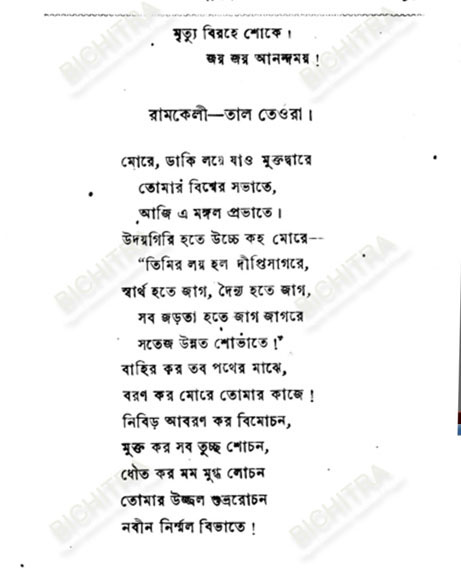 মৃত্যু বিরহে শোকে।
জয় জয় আনন্দময়!
রামকেলী—তাল তেওরা।
মোরে, ডাকি লয়ে যাও মুক্তদ্বারে
তোমার বিশ্বের সভাতে,
আজি এ মঙ্গল প্রভাতে।
উদয়গিরি হতে উচ্চে কহ মোরে—
“তিমির লয় হল দীপ্তিসাগরে,
স্বার্থ হতে জাগ, দৈন্য হতে জাগ,
সব জড়তা হতে জাগ জাগরে
সতেজ উন্নত শোভাতে!”
বাহির কর তব পথের মাঝে,
বরণ কর মোরে তোমার কাজে!
নিবিড় আবরণ কর বিমোচন,
মুক্ত কর সব তুচ্ছ শোচন,
ধৌত কর মম মুগ্ধ লোচন
তোমার উজ্জল শুভ্ররোচন
নবীন নির্ম্মল বিভাতে!
BICHITRA
BICHITRA
BICHITRA
BICHITRA
BICHITRA
BICHITRA